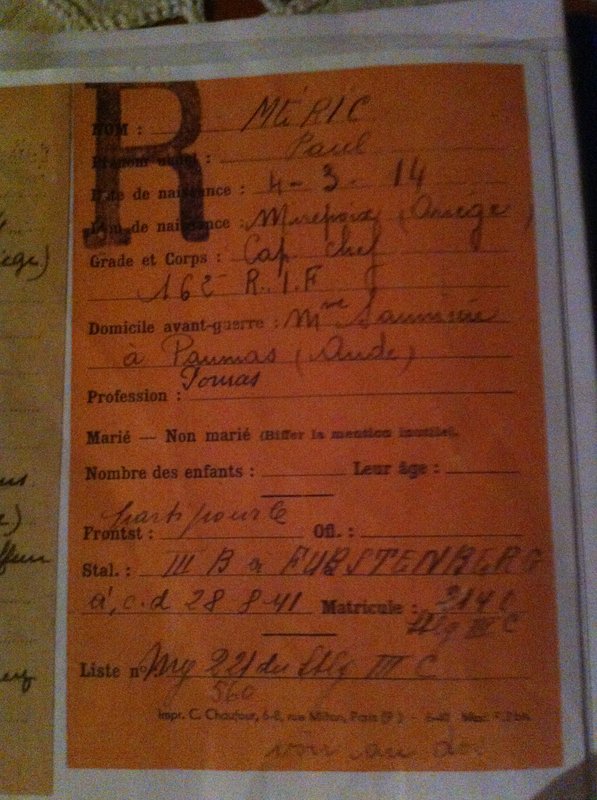 R
NOM : MÉRIC
Prénom usuel : Paul
Date de naissance : 4-3-14
Lieu de naissance : Mirepoix (Ariège)
Grade et Corps : Cap chef
162 R.I.F
Domicile avant-guerre : Mme
à Paumas (Aude)
Tomas
Profession :
Marié — Non marié (Biffer la mention inutile).
Nombre des enfants : Leur âge :
parti pour le
Frontst : Ofl. :
Stal. : III B à FURSTENBERG
à, c.d 28 8-41 Matricule : 314
Stlg III C
Liste n° Mrg 221 du Stlg III C
560
Impr. C. Chaufour, 6-8, rue Milton, Paris (9e)
voir au dos